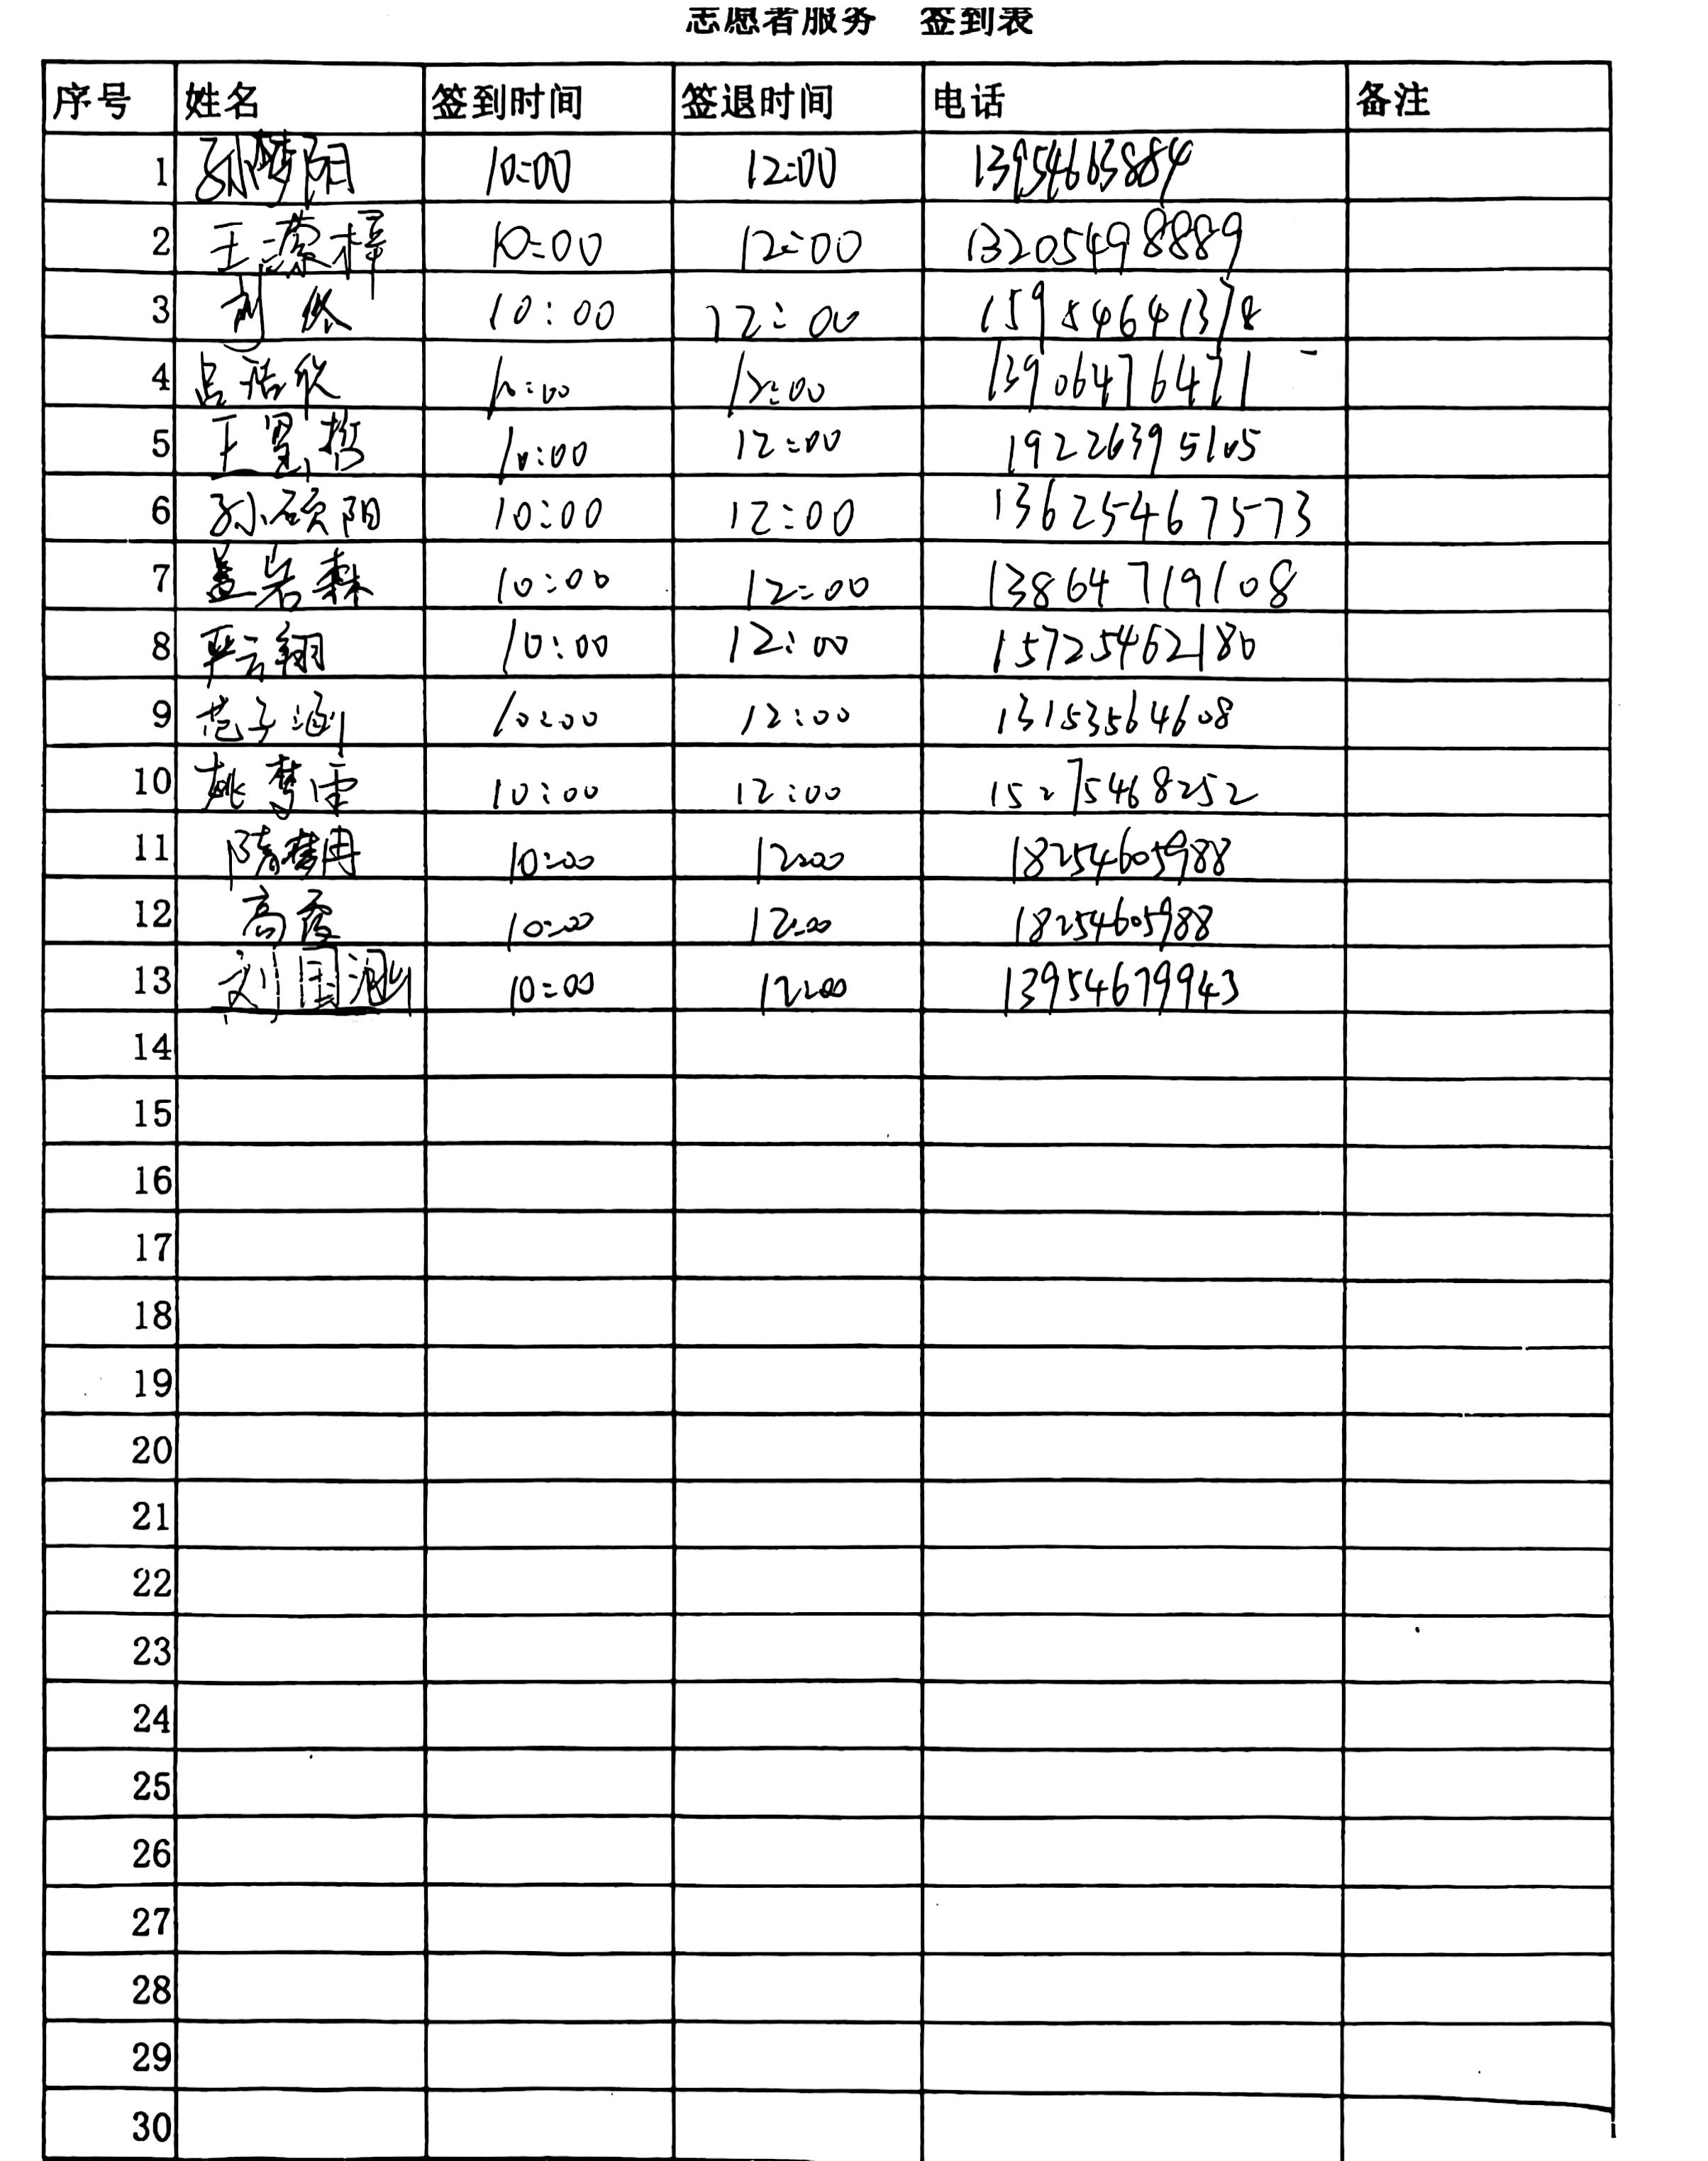 志愿者服务 签到表
序号 姓名 签到时间 签退时间 电话 备注
1 孙梦阳 10:00 12:00 13954663884
2 王潆梓 10:00 12:00 13205498889
3 10:00 12:00 15954641378
4 吕浩然 10:00 12:00 13906476471
5 王昱哲 10:00 12:00 19226395105
6 孙硕阳 10:00 12:00 13625467573
7 盖岩森 10:00 12:00 13864719108
8 严云翔 10:00 12:00 15725462180
9 范子涵 10:00 12:00 13153564608
10 姚梦雪 10:00 12:00 15275468252
11 隋梦冉 10:00 12:00 18254605988
12 高霞 10:00 12:00 18254605988
13 刘国涵 10:00 12:00 13954679943
14
15
16
17
18
19
20
21
22
23
24
25
26
27
28
29
30